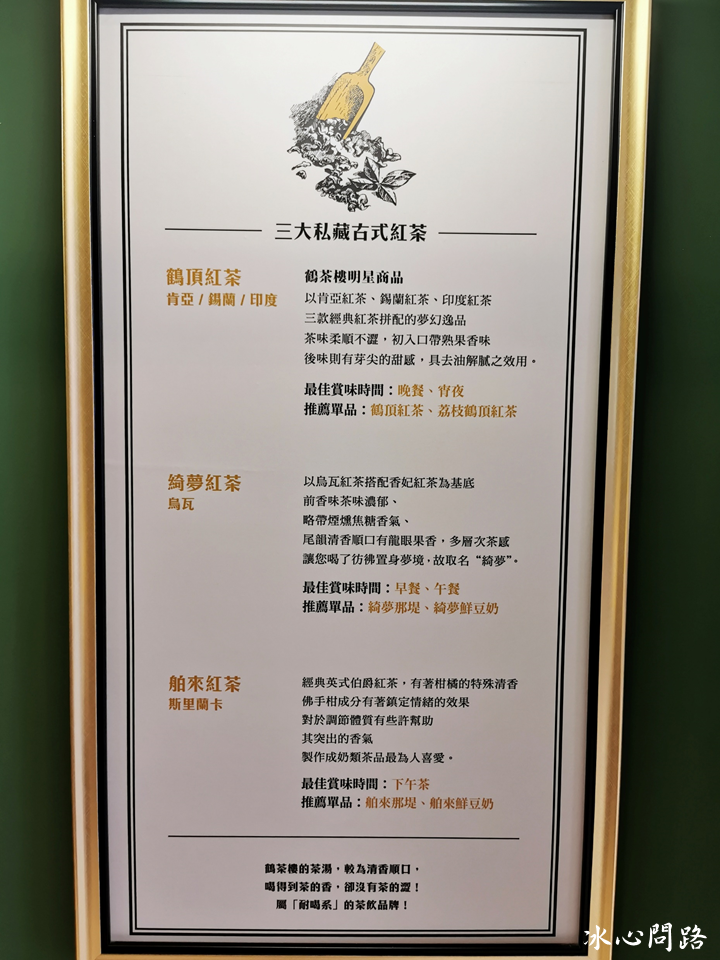 三大私藏古式紅茶
鶴頂紅茶
肯亞 / 錫蘭 / 印度
鶴茶樓明星商品
以肯亞紅茶、錫蘭紅茶、印度紅茶
三款經典紅茶拼配的夢幻逸品
茶味柔順不澀，初入口帶熟果香味
後味則有芽尖的甜感，具去油解膩之效用。
最佳賞味時間：晚餐、宵夜
推薦單品：鶴頂紅茶、荔枝鶴頂紅茶
綺夢紅茶
烏瓦
以烏瓦紅茶搭配香妃紅茶為基底
前香味茶味濃郁、
略帶煙燻焦糖香氣、
尾韻清香順口有龍眼果香，多層次茶感
讓您喝了彷彿置身夢境，故取名“綺夢”。
最佳賞味時間：早餐、午餐
推薦單品：綺夢那堤、綺夢鮮豆奶
舶來紅茶
斯里蘭卡
經典英式伯爵紅茶，有著柑橘的特殊清香
佛手柑成分有著鎮定情緒的效果
對於調節體質有些許幫助
其突出的香氣
製作成奶類茶品最為人喜愛。
最佳賞味時間：下午茶
推薦單品：舶來那堤、舶來鮮豆奶
鶴茶樓的茶湯，較為清香順口，
喝得到茶的香，卻沒有茶的澀！
屬「耐喝系」的茶飲品牌！
冰心問路